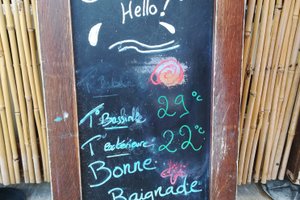 Hello!
T° Bassin 29°C
T° extérieure 22°C
Bonne
Baignade